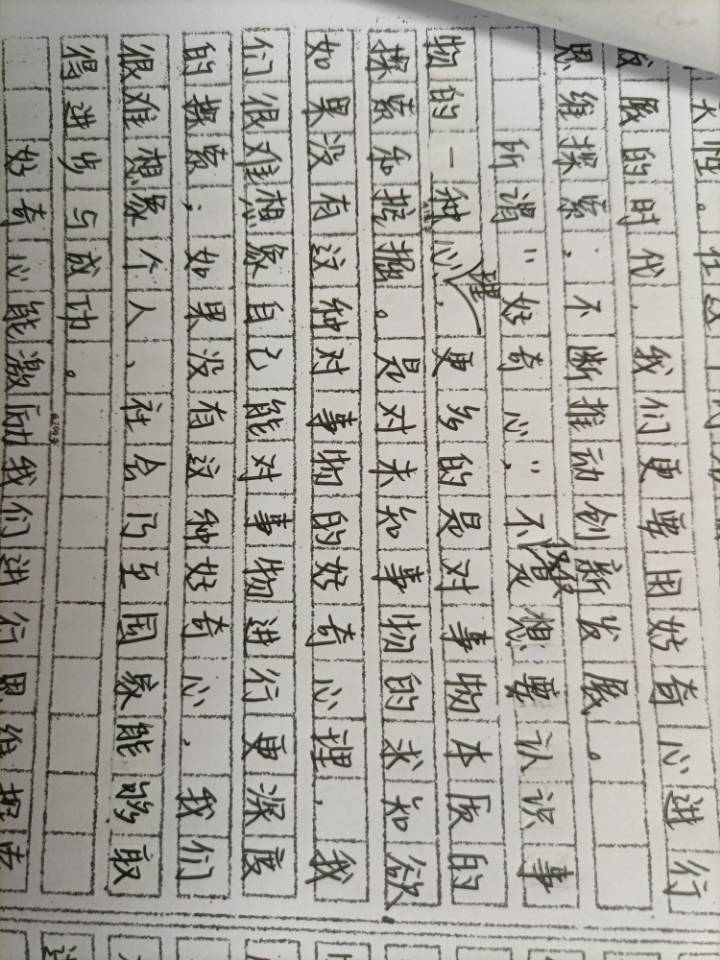 大性。在这个
发展的时代，我们更要用好奇心进行
思维探索，不断推动创新发展。
所谓“好奇心”，不仅仅是想要认识事
物的一种心理，更多的是对事物本质的
探索和挖掘。是对未知事物的求知欲
如果没有这种对事物的好奇心理，我
们很难想象自己能对事物进行更深度
的探索；如果没有这种好奇心，我们
很难想象个人、社会乃至国家能够取
得进步与成功。
好奇心能激励我们进行思维探索